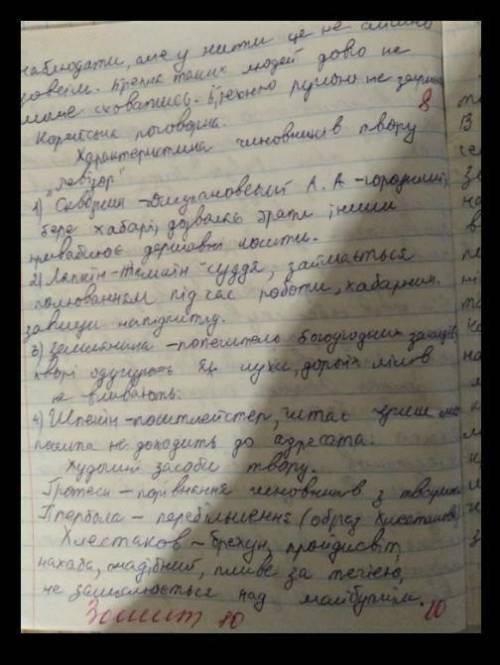 наблюдати, але у житті це не смішно
зовсім. Брехня таких людей довго не
може сховатись.
8
Корейська поговорка.
Характеристика чиновників твору
„Ревізор"
1) Сквозник-Дмухановський А. А -городничий,
бере хабарі, дозволяє брати іншим
привласнює державні кошти.
2) Ляпкін-Тяпкін -суддя, займається
полюванням під час роботи, хабарник.
завжди напідпитку.
3) Земляника -попечитель богоугодних закладів,
хворі одужують як мухи, дорогих ліків
не вживають.
4) Шпекін-поштмейстер, читає чужі
письма не доходить до адресата.
Художні засоби твору.
Гротеск - порівняння чиновників з тваринами
Гіпербола - перебільшення (образ Хлестакова)
Хлестаков - брехун, пройдисвіт,
нахаба, жадібний, пливе за течією,
не замислюється над майбутнім.
Зошит 10
10